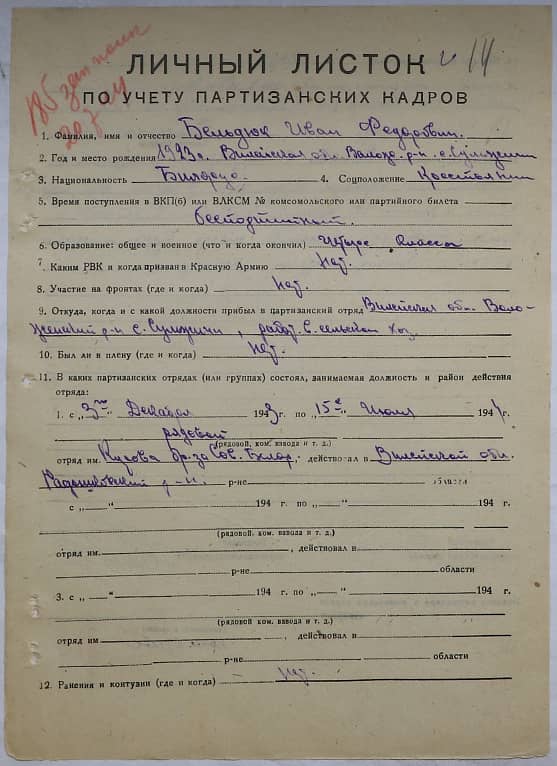 185 зап полк
20.7.44
ЛИЧНЫЙ ЛИСТОК
14
ПО УЧЕТУ ПАРТИЗАНСКИХ КАДРОВ
1. Фамилия, имя и отчество Бельдюк Иван Федорович.
2. Год и место рождения 1923 г. Вилейская обл. Волож. р-н с. Сужичи
3. Национальность Белорус. 4. Соцположение Крестьянин
5. Время поступления в ВКП(б) или ВЛКСМ № комсомольского или партийного билета
беспартийный.
6. Образование: общее и военное (что и когда окончил) Четыре класса
7. Каким РВК и когда призван в Красную Армию Нет.
8. Участие на фронтах (где и когда) Нет.
9. Откуда, когда и с какой должности прибыл в партизанский отряд Вилейская обл. Воло-
женский р-н с. Сужичи, работ. в сельском хоз.
10. Был ли в плену (где и когда) Нет.
11. В каких партизанских отрядах (или группах) состоял, занимаемая должность и район действия
отряда:
1. с „3го“ Декабря 1943 г. по „15е“ Июля 1944 г.
рядовой
(рядовой, ком. взвода и т. д.)
отряд им. бр. за Сов. Белор., действовал в Вилейской обл.
Радошковский р-н. р-не области
с „ “ 194 г. по „ “ 194 г.
(рядовой, ком. взвода и т. д.)
отряд им. , действовал в
р-не области
3. с „ “ 194 г. по „ “ 194 г.
(рядовой, ком. взвода и т. д.)
отряд им. , действовал в
р-не области
12. Ранения и контузии (где и когда) Нет.